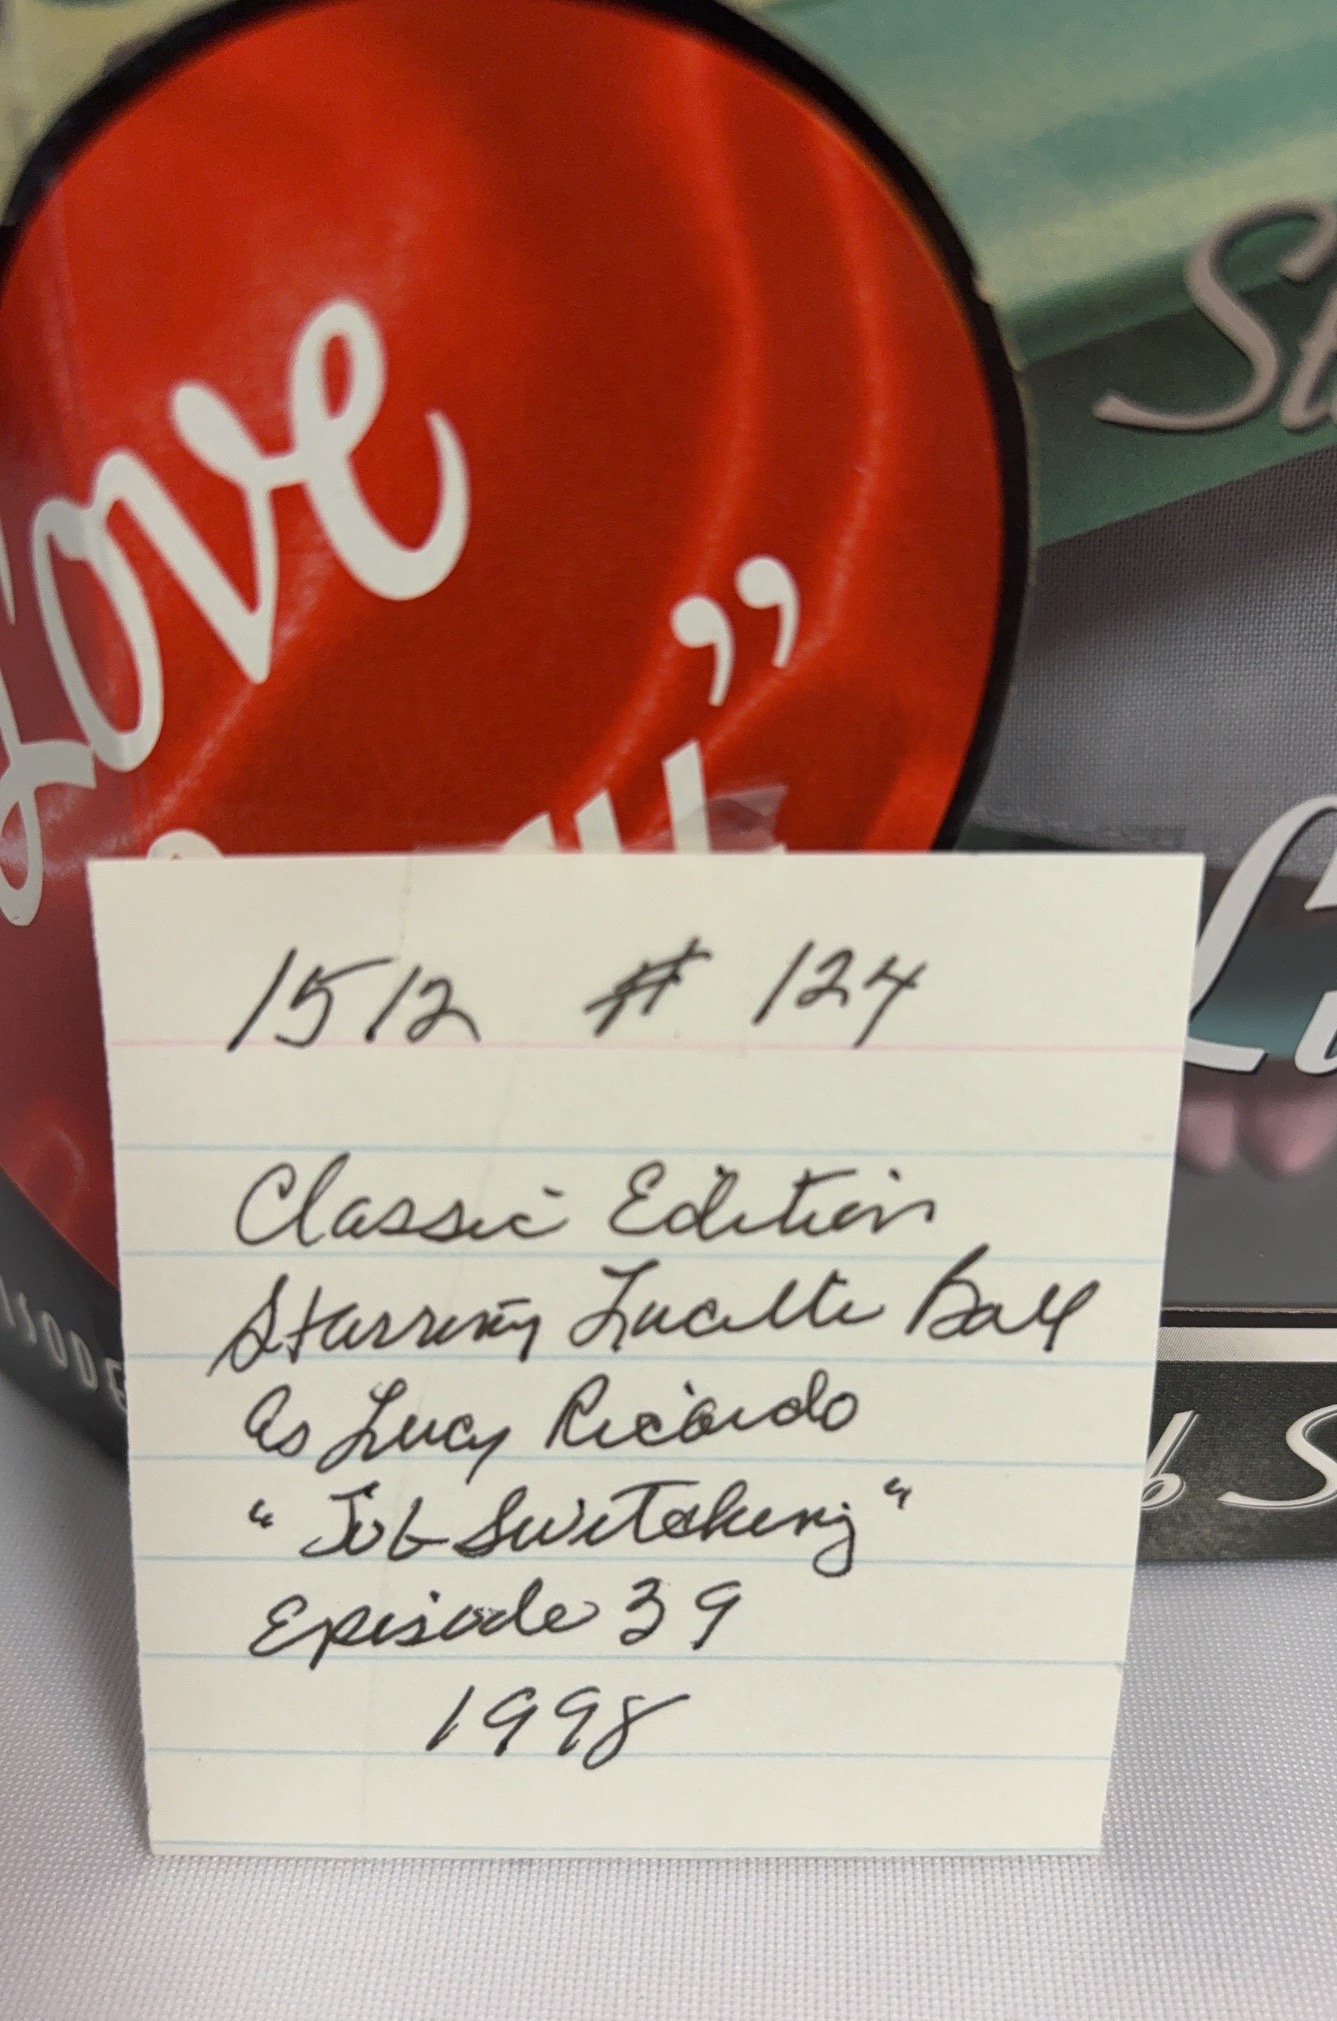 Love
”
St
Li
ISODE
b S
1512 # 124
Classic Edition
Starring Lucille Ball
as Lucy Ricardo
"Job Switching"
Episode 39
1998